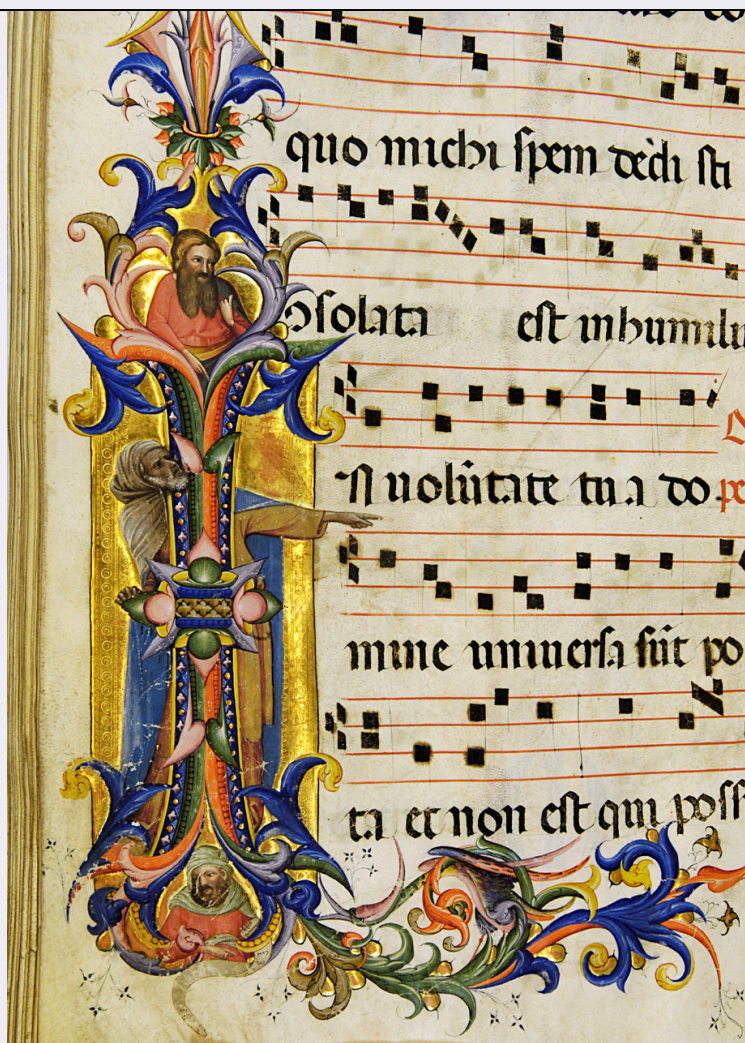 quo michi spem dedisti
osolata est in humili
I
n uolūtate tua do pe
mine uniuersa sūt po
ta et non est qui poss